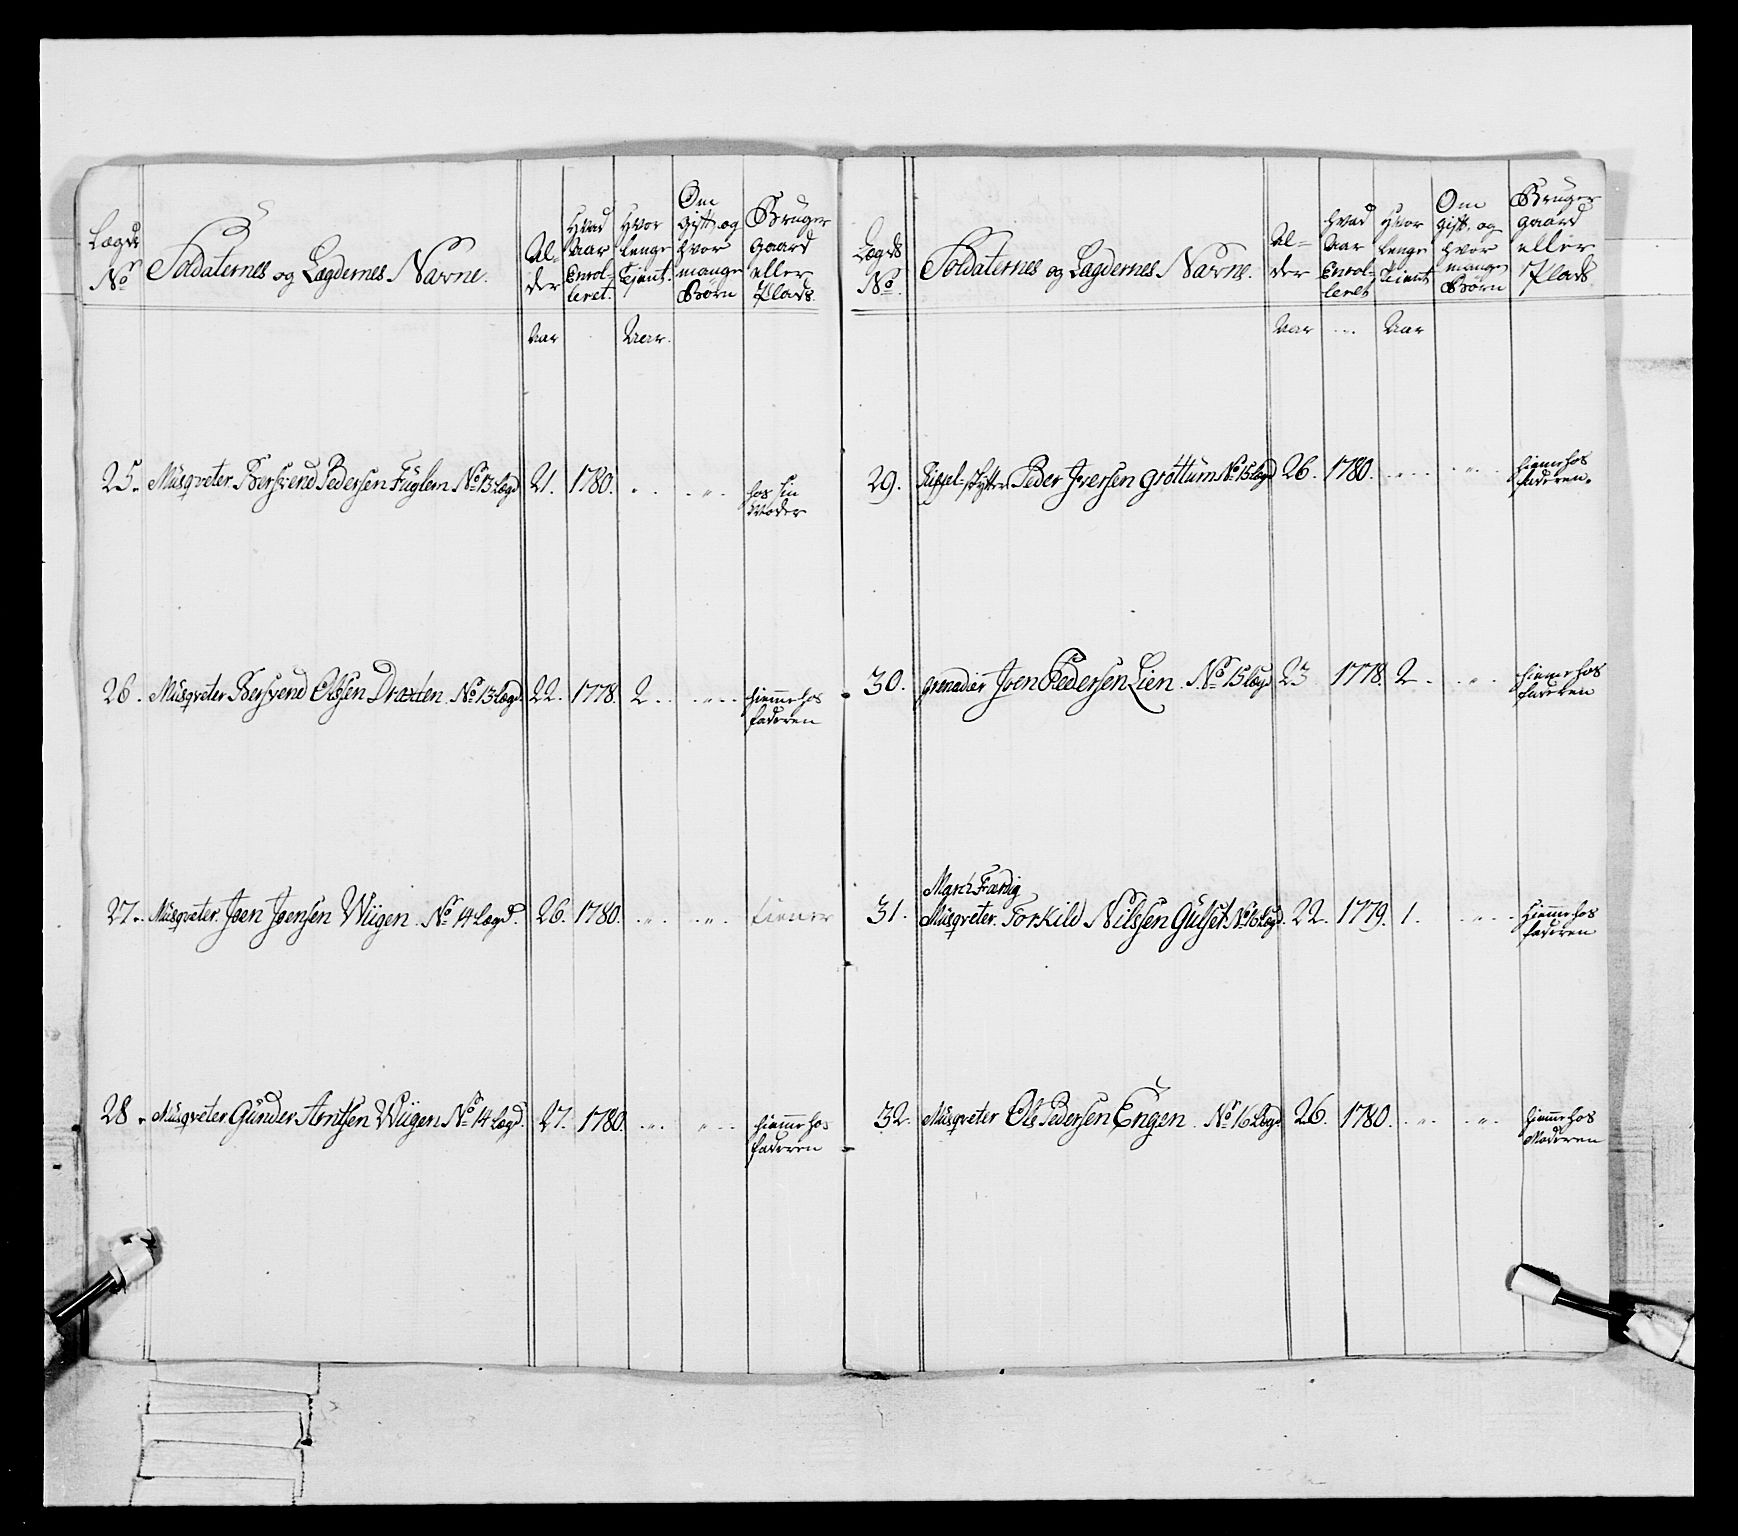 Lægds No
Soldaternes og Lægdernes Navne.
Al-
der
Hvad
Aar
Enrol-
leret.
Hvor
lenge
Tient.
Om
gift, og
hvor
mange
Børn
Bruger
gaard
eller
Plads.
Aar
Aar.
25. Musqveter Bersvend Pedersen Fuglem No 13 Lægd 21. 1780. hos sin
Moder
26. Musqveter Bersvend Olssen Draxten No 13 Lægd. 22. 1778. 2. hiemme hos
faderen
27. Musqveter Joen Joensen Wügen No 14 Lægd. 26. 1780. tiener
28. Musqveter Gunder Arntsen Wügen No 14 Lægd. 27. 1780. hiemme hos
faderen
Lægds
No.
Soldaternes og Lægdernes Navne.
Al-
der
Hvad
Aar
Enrol-
leret
Hvor
lenge
Tient
Om
gift, og
hvor
mange
Børn
Bruger
gaard
eller
Plads
Aar
Aar
29. Riffel-skytter Peder Iversen Grøttum No 15 Lægd 26. 1780. hieme hos
faderen.
30. grenadier Joen Pedersen Lien No 15 Lægd 23 1778. 2. hieme hos
faderen
March Færdig
31. Musqveter Torkild Nilssen Gulset No 16 Lægd. 22. 1779. 1. hiemme hos
faderen
32. Musqveter Ole Pedersen Engen No 16 Lægd 26. 1780. hiemme hos
Moderen